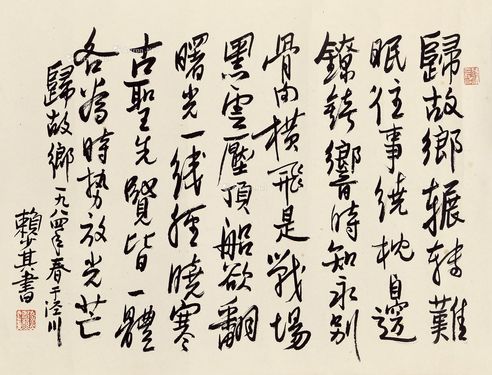 歸故鄉辗转難
眠往事绕枕自邊
鐐銬響時知永别
骨肉横飛是戰場
黑雲壓頂船欲翻
曙光一线經曉寒
古聖先賢皆一體
各為時势放光芒
歸故鄉 一九八四年春于泾川
賴少其書